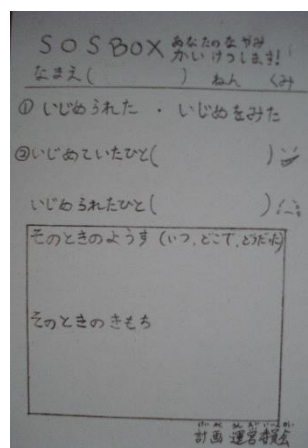 SOSBOX あなたのなやみ
かいけつします!
なまえ( ) ねん くみ
① いじめられた ・ いじめをみた
② いじめていたひと( )
いじめられたひと( )
そのときのようす (いつ、どこで、どうだった)
そのときのきもち
計画 運営委員会